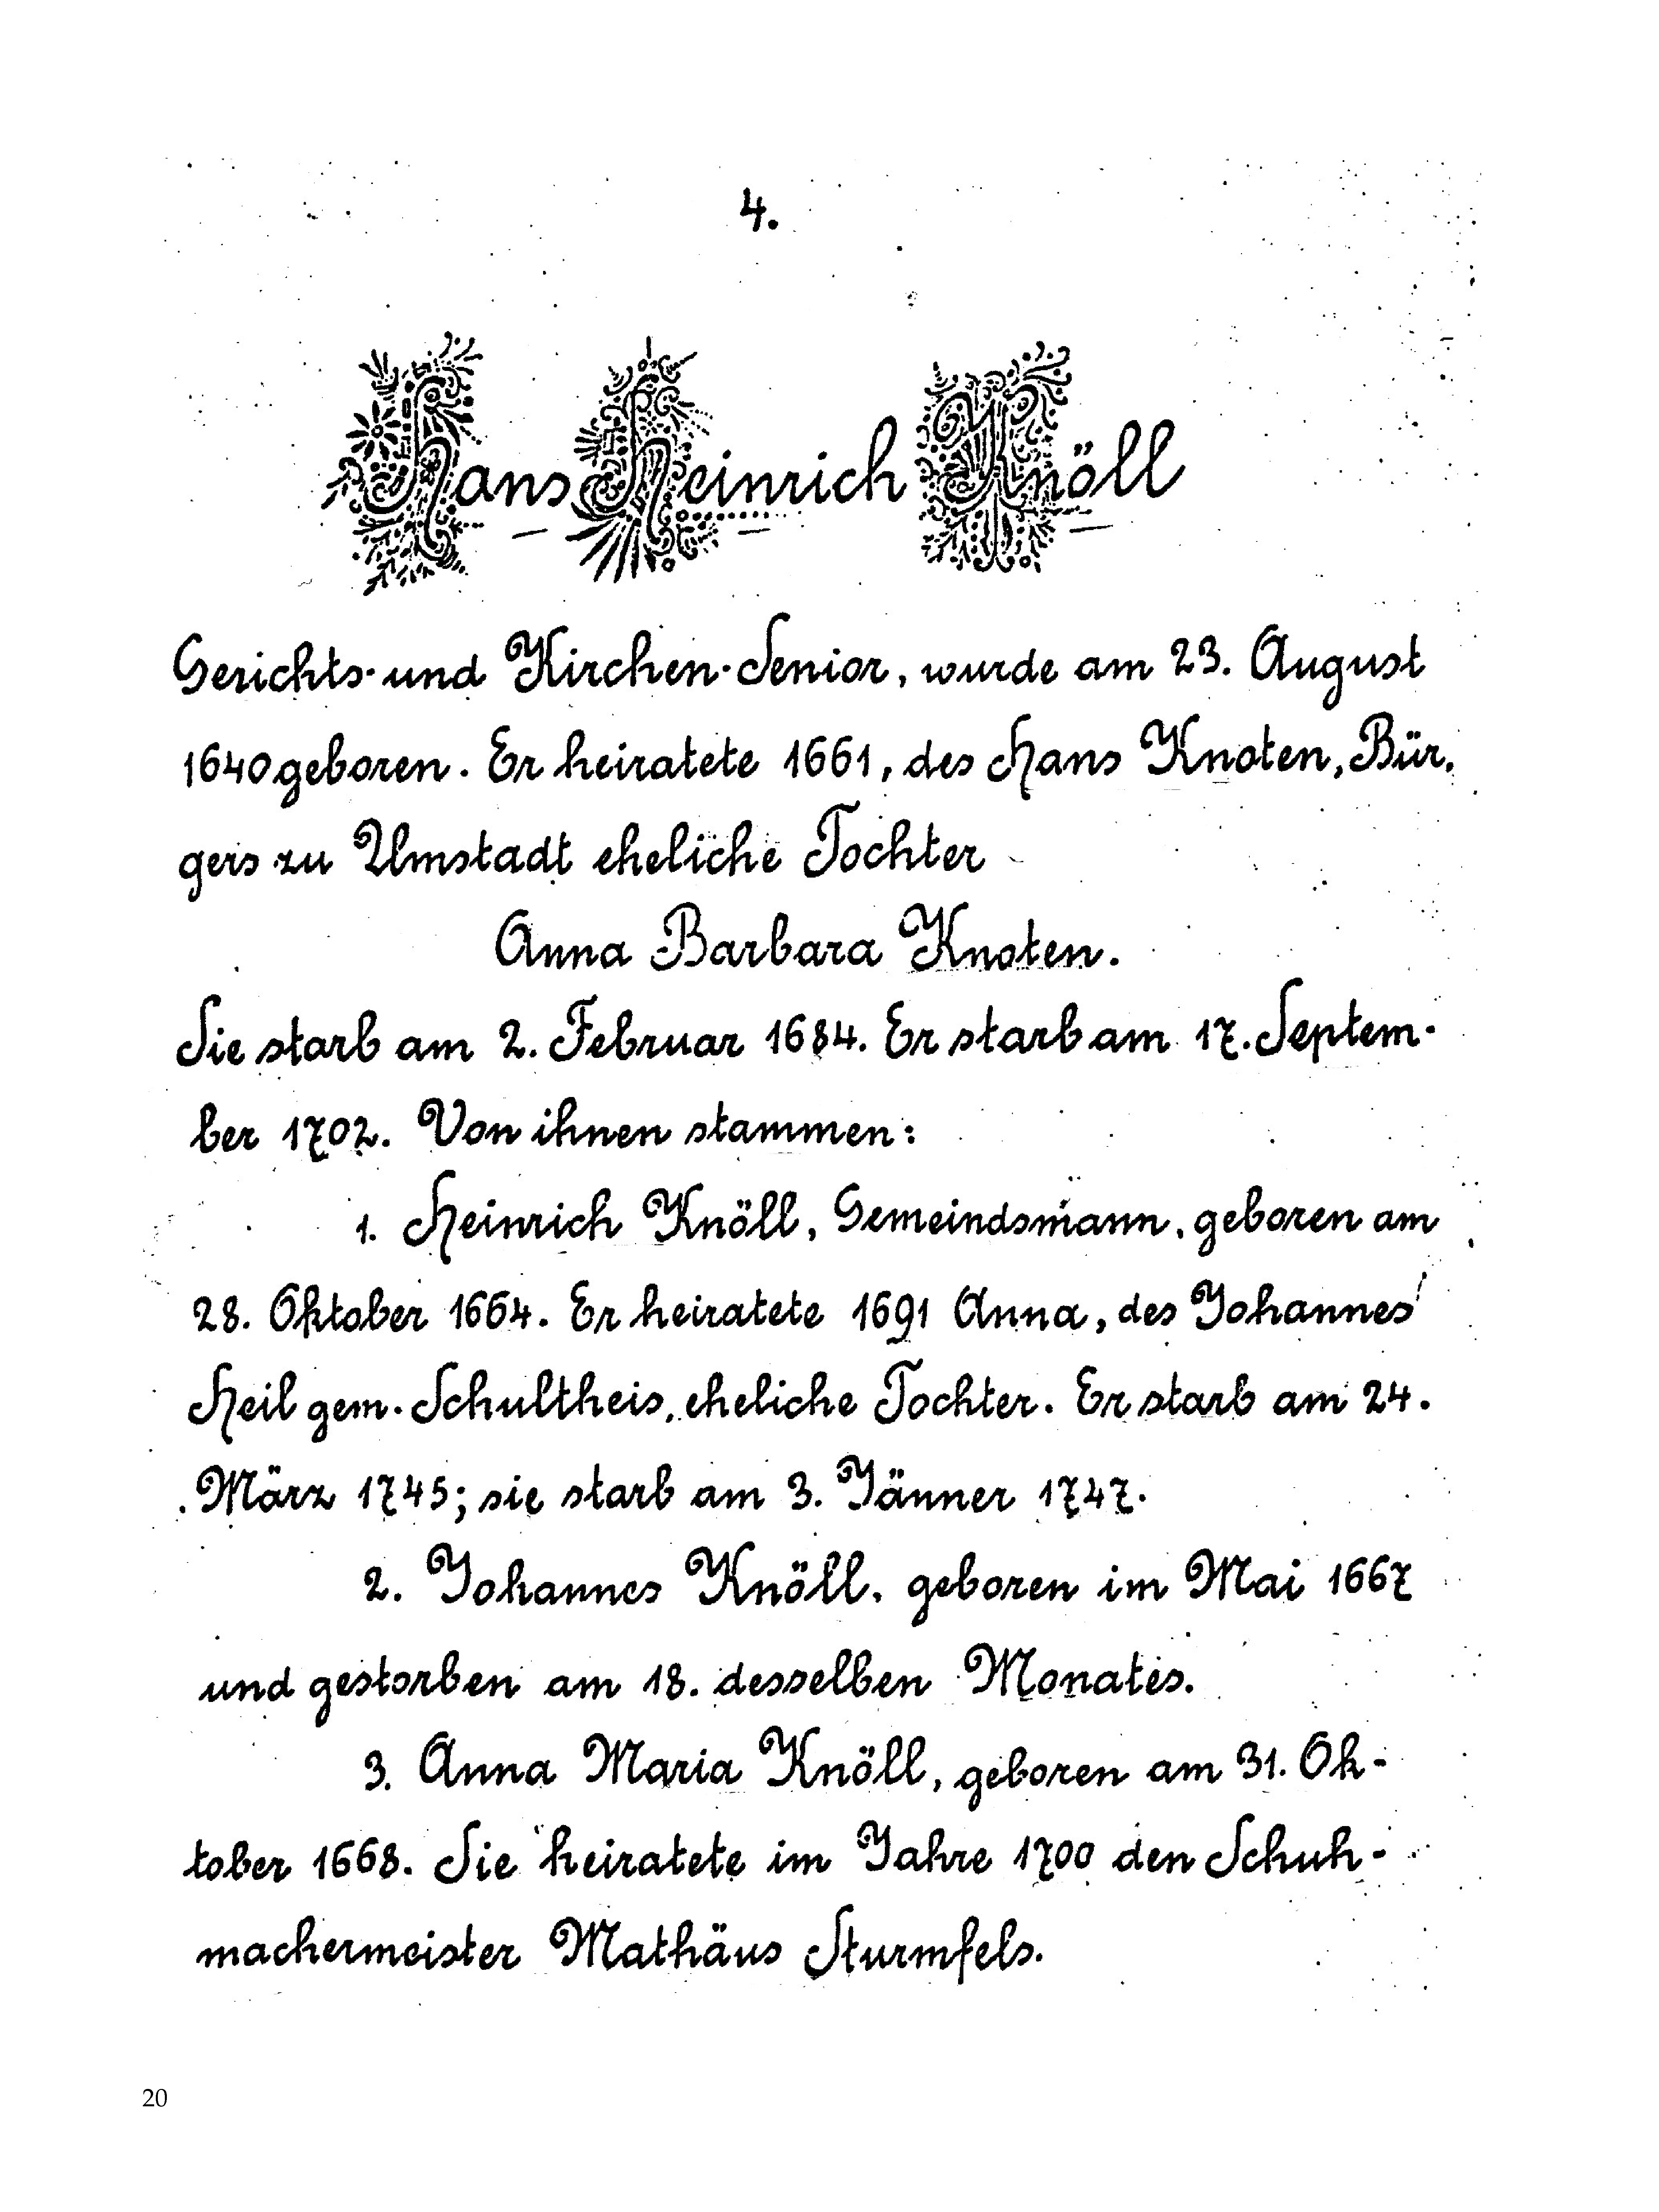 4.
Hans Heinrich Knöll
Gerichts- und Kirchen-Senior, wurde am 23. August
1640 geboren. Er heiratete 1661, des Hans Knoten, Bür-
gers zu Umstadt eheliche Tochter
Anna Barbara Knoten.
Sie starb am 2. Februar 1684. Er starb am 17. Septem-
ber 1702. Von ihnen stammen:
1. Heinrich Knöll, Gemeindsmann, geboren am
28. Oktober 1664. Er heiratete 1691 Anna, des Johannes
Heil gem. Schultheis, eheliche Tochter. Er starb am 24.
März 1745; sie starb am 3. Jänner 1747.
2. Johannes Knöll, geboren im Mai 1667
und gestorben am 18. desselben Monates.
3. Anna Maria Knöll, geboren am 31. Ok-
tober 1668. Sie heiratete im Jahre 1700 den Schuh-
machermeister Mathäus Sturmfels.
20